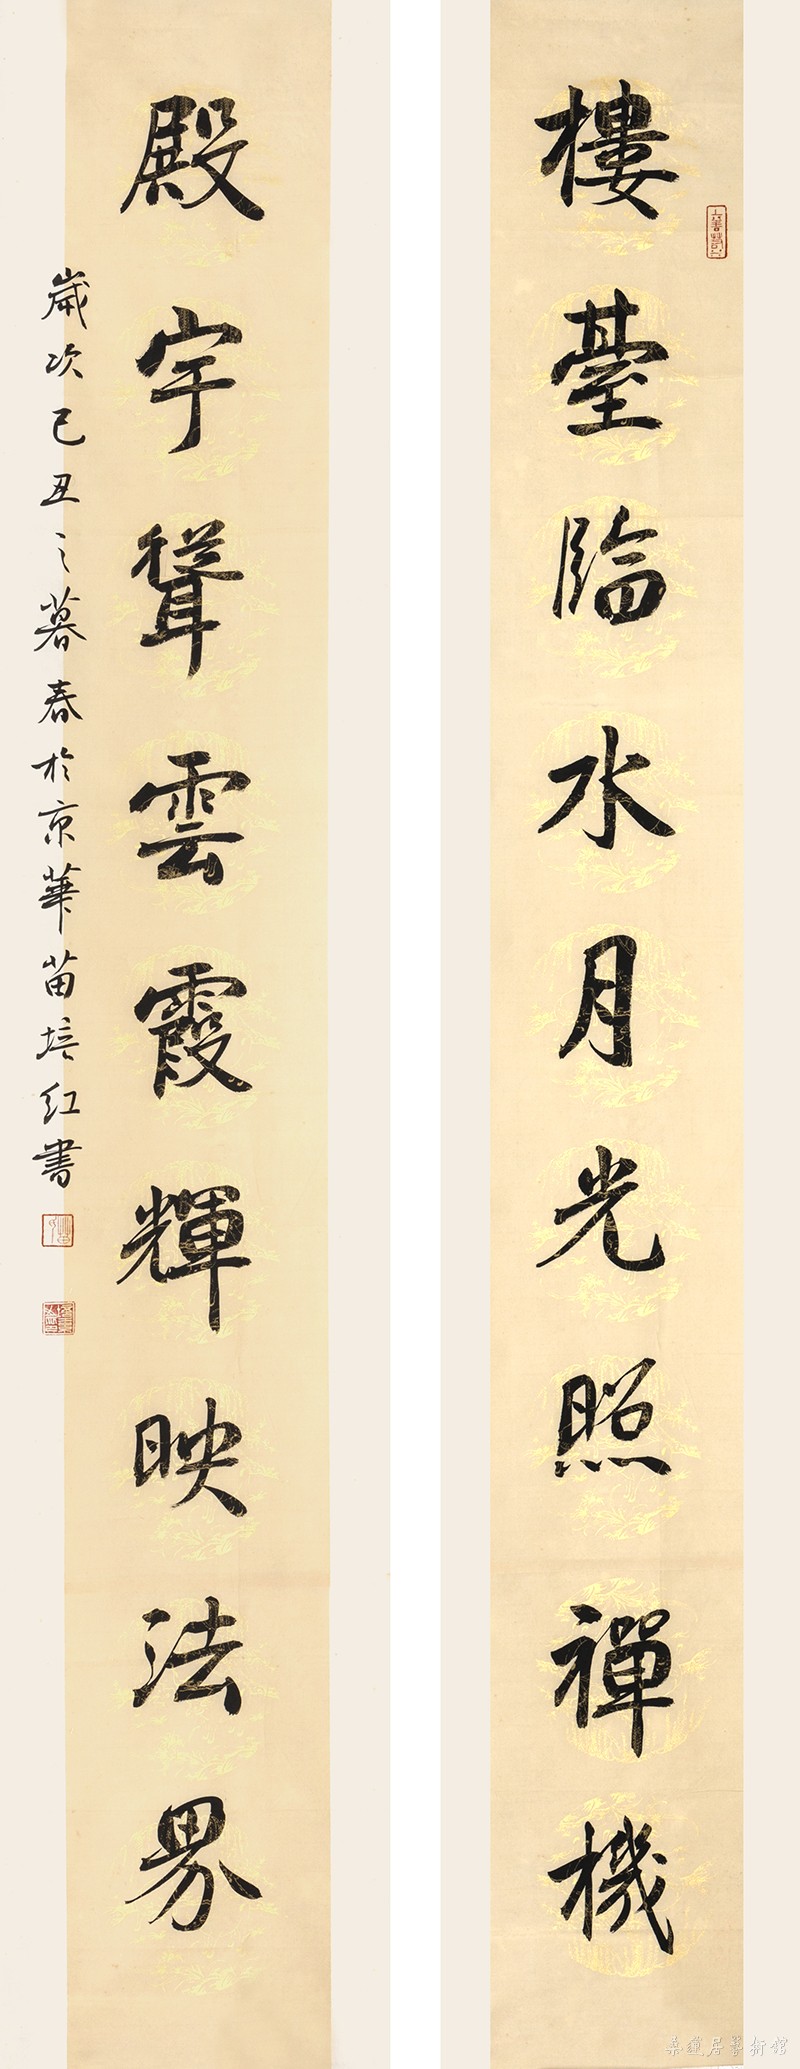 樓臺臨水月光照禪機
殿宇聳雲霞輝映法界
歲次己丑之暮春於京華苗培红書
桑蓮居藝術館